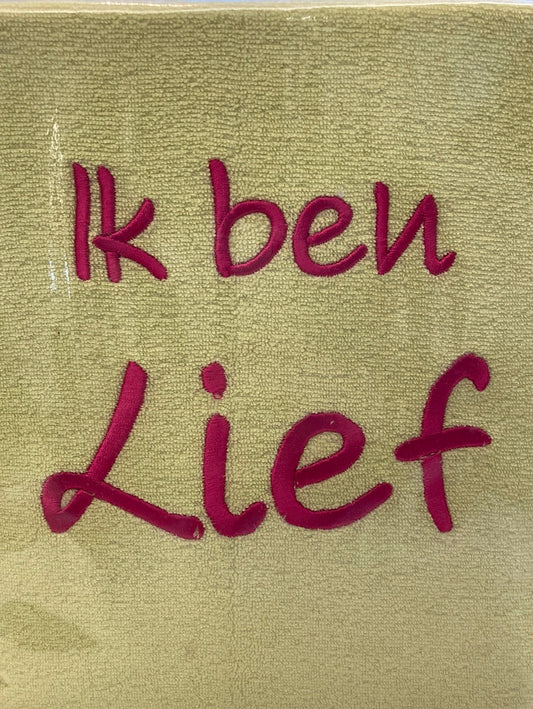 Ik ben
Lief